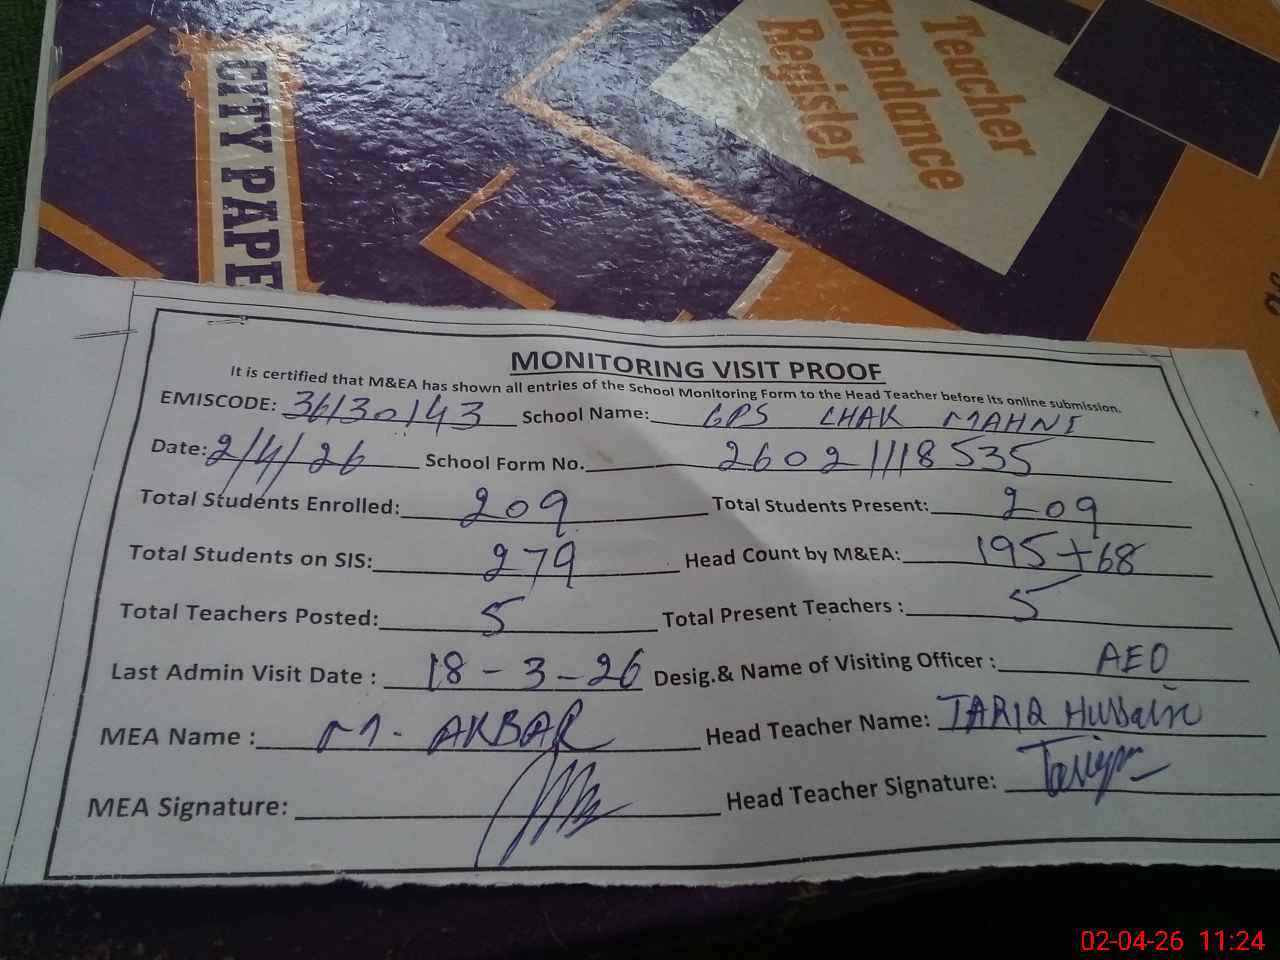 Teacher
Attendance
Register
CITY PAPE
MONITORING VISIT PROOF
It is certified that M&EA has shown all entries of the School Monitoring Form to the Head Teacher before its online submission.
EMISCODE: 36130143 School Name: GPS CHAK MAHNI
Date: 2/4/26 School Form No. 26021118535
Total Students Enrolled: 209 Total Students Present: 209
Total Students on SIS: 279 Head Count by M&EA: 195+68
Total Teachers Posted: 5 Total Present Teachers : 5
Last Admin Visit Date : 18-3-26 Desig.& Name of Visiting Officer : AEO
MEA Name : M. AKBAR Head Teacher Name: TARIQ Hussain
MEA Signature: Head Teacher Signature: Tariq
02-04-26 11:24